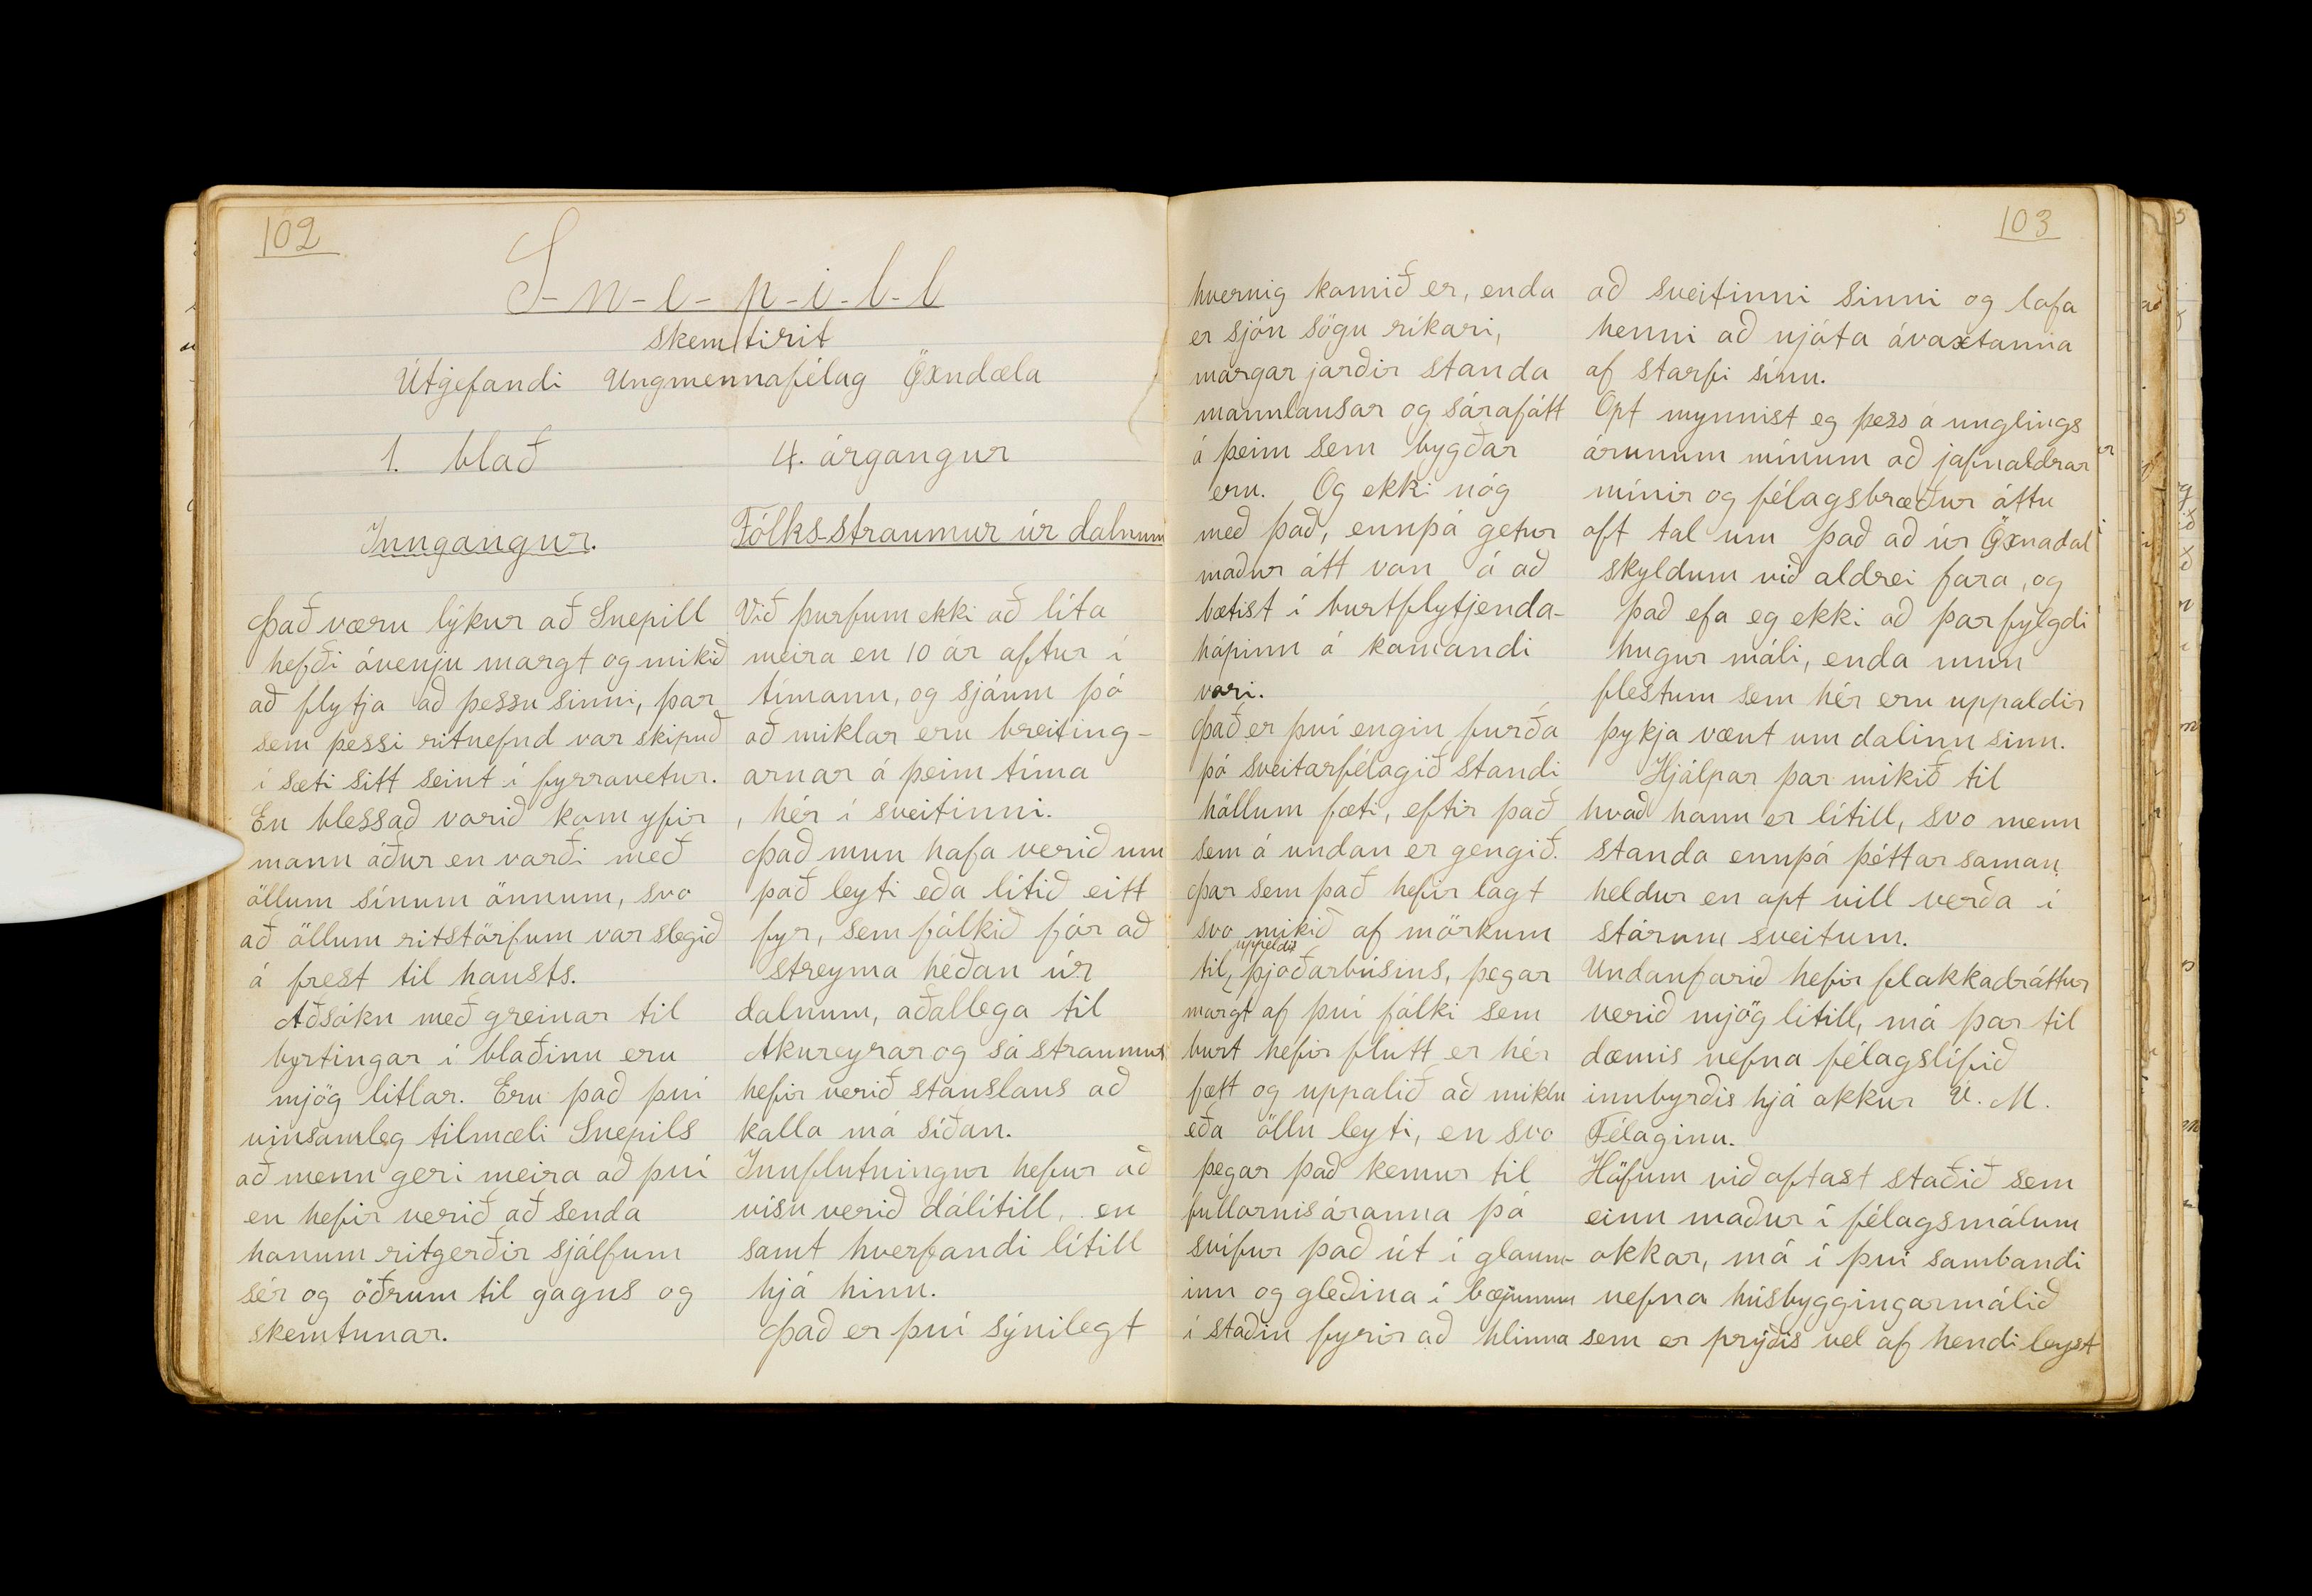 102
S-n-e-p-i-l-l
skemtirit
Útgefandi Ungmennafélag Öxndæla
1. blað
4. árgangur
Inngangur.
Það væru lýkur að Snepill
hefði óvenju margt og mikið
að flytja að þessu sinni, þar
sem þessi ritnefnd var skipuð
í sæti sitt seint í fyrravetur.
En blessað vorið kom yfir
mann áður en varði með
öllum sínum önnum, svo
að öllum ritstörfum var slegið
á frest til hausts.
Aðsókn með greinar til
byrtingar í blaðinu eru
mjög litlar. Eru það því
vinsamleg tilmæli Snepils
að menn geri meira að því
en hefir verið að senda
honum ritgerðir sjálfum
sér og öðrum til gagns og
skemtunar.
Fólks-straumur úr dalnum
Við þurfum ekki að líta
meira en 10 ár aftur í
tímann, og sjáum þó
að miklar eru breiting-
arnar á þeim tíma
, hér í sveitinni.
Það mun hafa verið um
það leyti eða lítið eitt
fyr, sem fólkið fór að
streyma héðan úr
dalnum, aðallega til
Akureyrar og sá straumur
hefir verið stanslaus að
kalla má síðan.
Innflutningur hefur að
vísu verið dálítill, en
samt hverfandi lítill
hjá hinn.
Það er því sýnilegt
103
hvernig komið er, enda
er sjón sögu ríkari,
margar jarðir standa
mannlausar og sárafátt
á þeim sem bygðar
eru. Og ekki nóg
með það, ennþá getur
maður átt von á að
bætist í burtflytjenda-
hópinn á komandi
vori.
Það er því engin furða
þó sveitarfélagið standi
höllum fæti, eftir það
sem á undan er gengið.
Þar sem það hefir lagt
svo mikið af mörkum
uppeldis
til, þjoðarbúsins, þegar
margt af því fólki sem
burt hefir flutt er hér
fætt og uppalið að miklu
eða öllu leyti, en svo
þegar það kemur til
fullornisáranna þá
svífur það út í glaum-
inn og gleðina í bæjunum
í staðin fyrir að hlinna
að sveitinni sinni og lofa
henni að njóta ávaxtanna
af starfi sínu.
Opt mynnist eg þess á unglings
árunum mínum að jafnaldrar
mínir og félagsbræður áttu
oft tal um það að úr Öxnadal
skyldum við aldrei fara, og
það efa eg ekki að þar fylgdi
hugur máli, enda mun
flestum sem hér eru uppaldir
þykja vænt um dalinn sinn.
Hjálpar þar mikið til
hvað hann er lítill, svo menn
standa ennþá þéttar saman
heldur en opt vill verða í
stórum sveitum.
Undanfarið hefir flokkadráttur
verið mjög lítill, má þar til
dæmis nefna félagslífið
innbyrðis hjá okkur U. M.
Félaginu.
Höfum við oftast staðið sem
einn maður í félagsmálum
okkar, má í því sambandi
nefna húsbyggingarmálið
sem er prýðis vel af hendi leyst